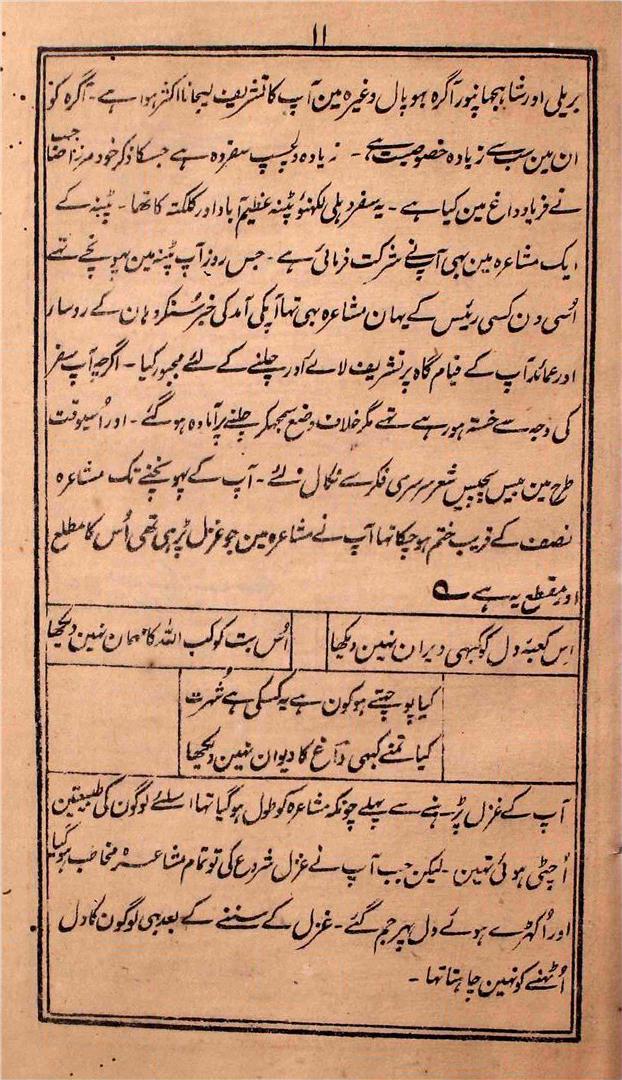 ۱۱
بریلی اور شاہجہانپور آگرہ بہوپال وغیرہ مین آپ کا تشریف لیجانا اکثر ہوا ہے۔ آگرہ کو
ان مین سب سے زیادہ خصوصیت ہے۔ زیادہ دلچسپ سفر وہ ہے جسکا ذکر خود مرزا صاحب
نے فریاد داغ مین کیا ہے۔ یہ سفر دہلی لکھنؤ پٹنہ عظیم آباد اور کلکتہ کا تھا۔ پٹنہ کے
ایک مشاعرہ مین بہی آپنے شرکت فرمائی ہے۔ جس روز آپ پٹنہ مین پہونچے تہے
اُسی دن کسی رئیس کے یہان مشاعرہ بہی تہا آپکی آمد کی خبر سُنکر وہان کے روسار
اور عمائد آپ کے قیام گاہ پر تشریف لائے اور چلنے کے لئے مجبور کیا۔ اگرچہ آپ سفر
کی وجہ سے خستہ ہو رہے تہے مگر خلاف وضع سمجہکر چلنے پر آمادہ ہو گئے۔ اور اُسیوقت
طرح مین بیس پچیس شعر سرسری فکر سے نکال لئے۔ آپ کے پہونچنے تک مشاعرہ
نصف کے قریب ختم ہو چکا تہا آپ نے مشاعرہ مین جو غزل پڑہی تھی اُس کا مطلع
اور مقطع یہ ہے
اِس کعبۂ دل کو کبہی ویران نہین دیکھا اُس بت کو کب اللہ کا مہمان نہین دیکھا
کیا پوچہتے ہو کون ہے یہ کسکی ہے شُہرت
کیا تمنے کبہی داغؔ کا دیوان نہین دیکھا
آپ کے غزل پڑہنے سے پہلے چونکہ مشاعرہ کو طول ہو گیا تہا اسلئے لوگون کی طبیعتین
اُچٹی ہوئی تہین۔ لیکن جب آپ نے غزل شروع کی تو تمام مشاعرہ مخاطب ہو گیا
اور اُکہڑے ہوئے دل پہر جم گئے۔ غزل کے سننے کے بعد بہی لوگون کا دل
اُٹہنے کو نہین چاہتا تہا۔